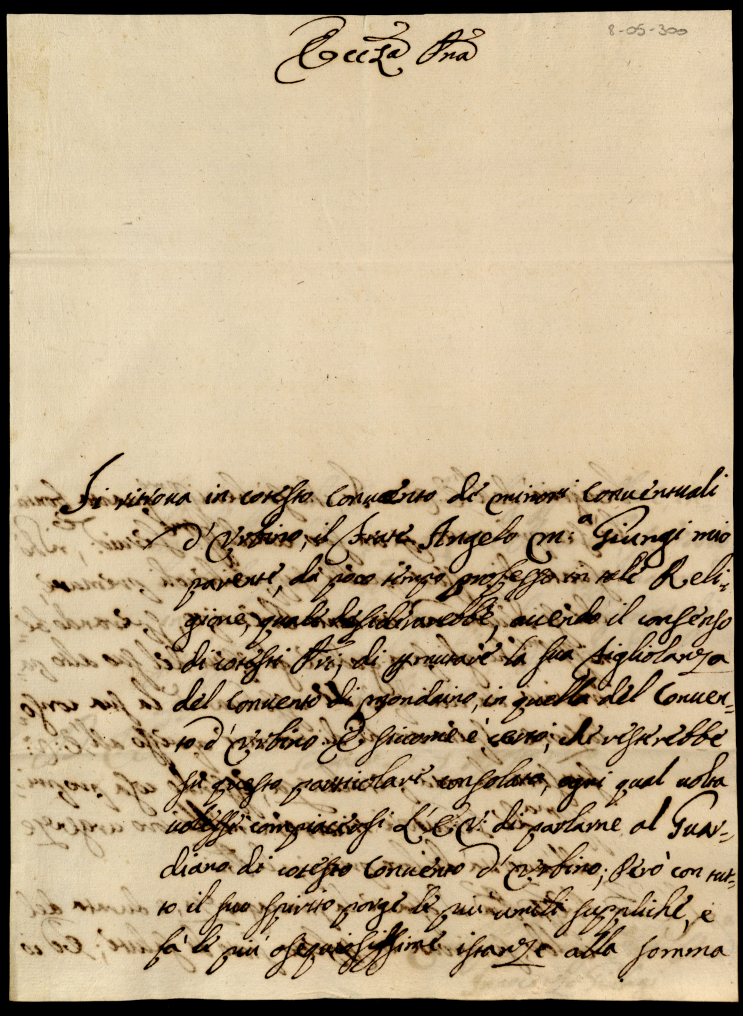 8-05-300
Eccza Pna
Si ritrova in cotesto Convento de minori Conventuali
d'Urbino, il Frate Angelo M.a Giungi mio
parente, da poco tempo professo in tale Reli-
gione, quale desiderarebbe, avendo il consenso
di cotesti Pri, di permutare la sua figliolanza
del Convento di Mondaino, in quella del Conven-
to d'Urbino. E siccome è certo, che resterebbe
su questo particolare consolato, ogni qual volta
volesse compiacersi L'E: V: di parlarne al Guar-
diano di cotesto Convento d'Urbino; Però con tut-
to il suo spirito porge le più umili suppliche, e
fà le più ossequiosissime istanze alla somma